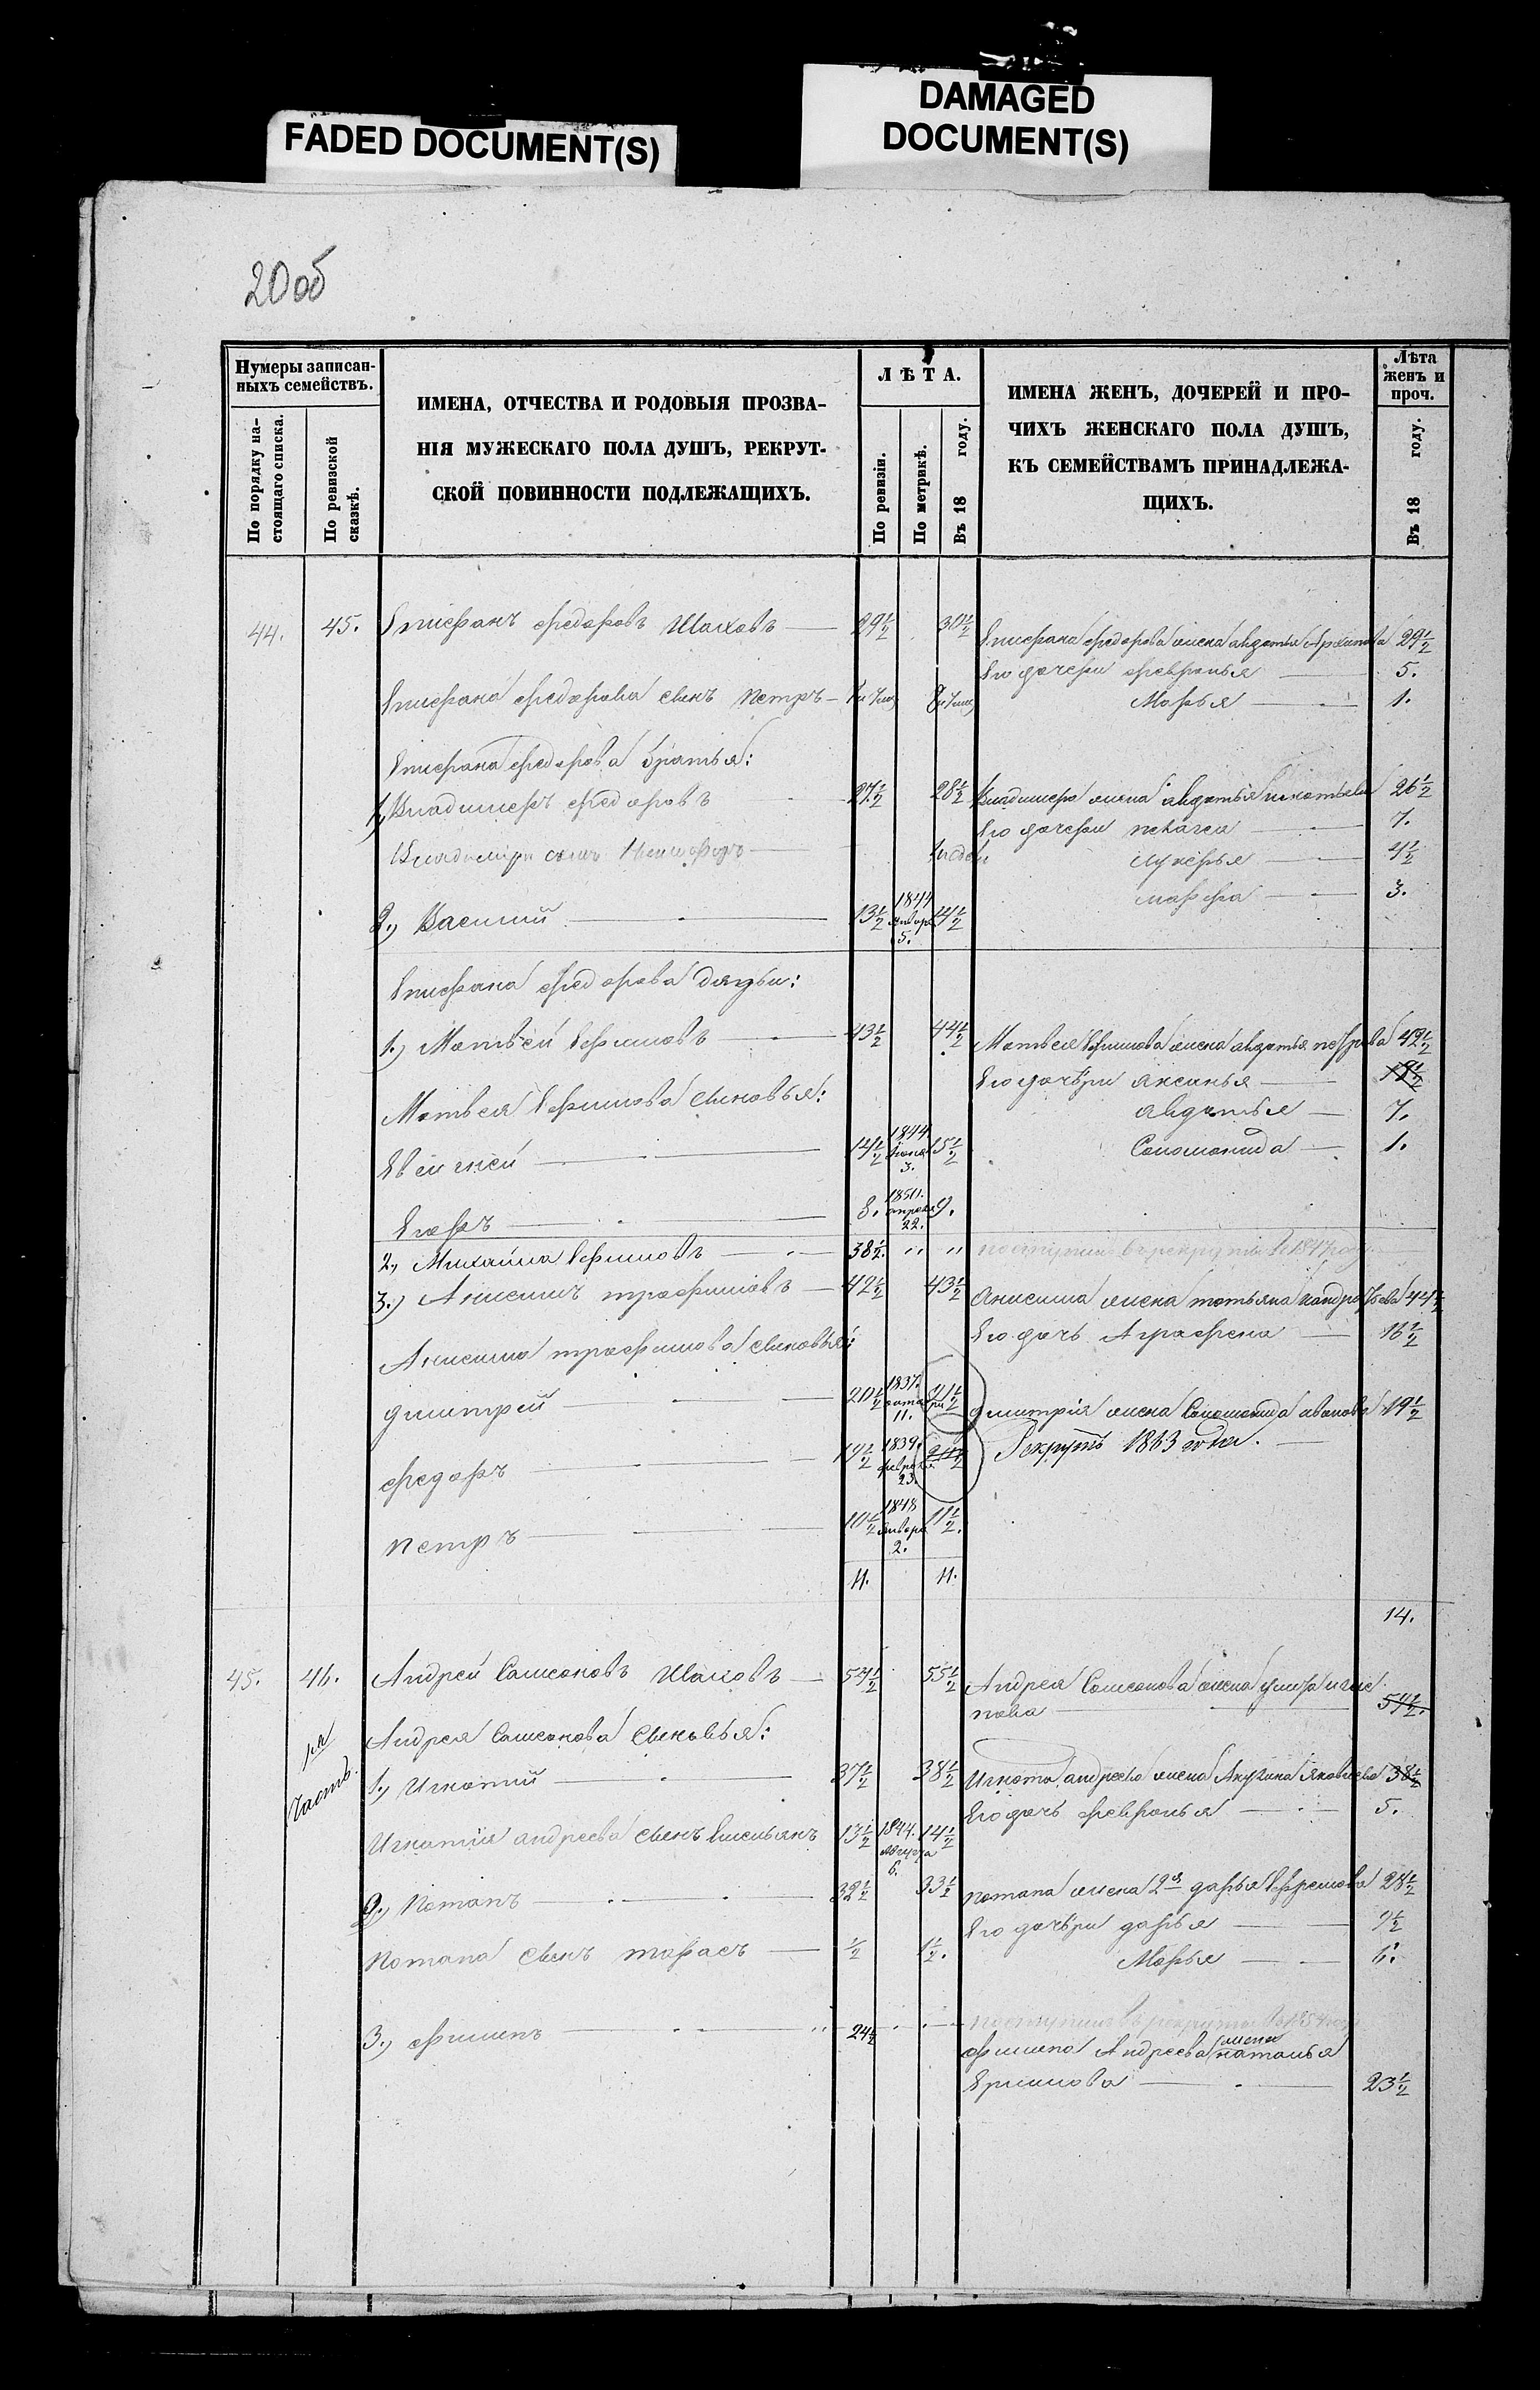 FADED DOCUMENT(S)
DAMAGED
DOCUMENT(S)
20 об
Нумеры записан-
ныхъ семействъ.
По порядку на-
стоящаго списка.
По ревизской
сказкѣ.
ИМЕНА, ОТЧЕСТВА И РОДОВЫЯ ПРОЗВА-
НІЯ МУЖЕСКАГО ПОЛА ДУШЪ, РЕКРУТ-
СКОЙ ПОВИННОСТИ ПОДЛЕЖАЩИХЪ.
ЛѢТА.
По ревизіи.
По метрикѣ.
Въ 18 году.
ИМЕНА ЖЕНЪ, ДОЧЕРЕЙ И ПРО-
ЧИХЪ ЖЕНСКАГО ПОЛА ДУШЪ,
КЪ СЕМЕЙСТВАМЪ ПРИНАДЛЕЖА-
ЩИХЪ.
Лѣта
женъ и
проч.
Въ 18 году.
44. 45. Епифанъ федоровъ Шаховъ — 29½ 30½
Епифана федорова жена авдотья Архипова 29½
Его дочери февронья — 5.
Епифана федорова сынъ петръ —
Марья — 1.
Епифана федорова братья:
1, Владимеръ федоровъ — 27½ 28½ Владимера жена авдотья 26½
Его дочери пелагея — 7.
Владимера сынъ
лукерья — 4½
марфа — 3.
2., Василий — 13½ 1844 января 5. 14½
Епифана федорова дядьи:
1.) Матвей Ефимовъ — 43½ 44½ Матвея Ефимова жена авдотья петрова 42½
Его дочери аксинья —
Матвея Ефимова сыновья:
авдотья — 7.
Евсигней — 14½ 1844 3. 15½
Соломонида — 1.
Егоръ — 8. 1850. апреля 22. 9.
2., Михайла Ефимовъ — 38½. " " поступилъ в рекруты в 1847 году
3.) Анисимъ трофимовъ — 42½ 43½ Анисима жена татьяна кондратьева 44½
Его дочь Аграфена — 16½
Анисима трофимова сыновья:
дмитрей — 20½ 1837. 11. 21½ дмитрия жена Соломонида иванова 19½
федоръ — 19½ 1839. февраля 23. 20½ Рекрутъ 1863 года. —
петръ — 10½ 1848 января 2. 11½.
11. 11.
14.
45. 46. Андрей Самсоновъ Шаховъ — 54½ 55½ Андрея Самсонова жена
пова — 54½.
Андрея Самсонова сыновья:
часть.
1., Игнатий — 37½ 38½ Игната андреева жена Акулина Яковлева 38½
Его дочь февронья — 5.
Игнатия андреева сынъ Емельянъ 13½ 1844. августа 6. 14½
2.) Потапъ — 32½ 33½ потапа жена 2я дарья Ефремова 28½
Его дочери дарья — 9½
Потапа сынъ тарасъ — ½ 1½.
Марья — 6.
3., филипъ — 24½ — поступилъ в рекруты в 1854 году
филипа Андреева жена наталья
Ефимова — 23½